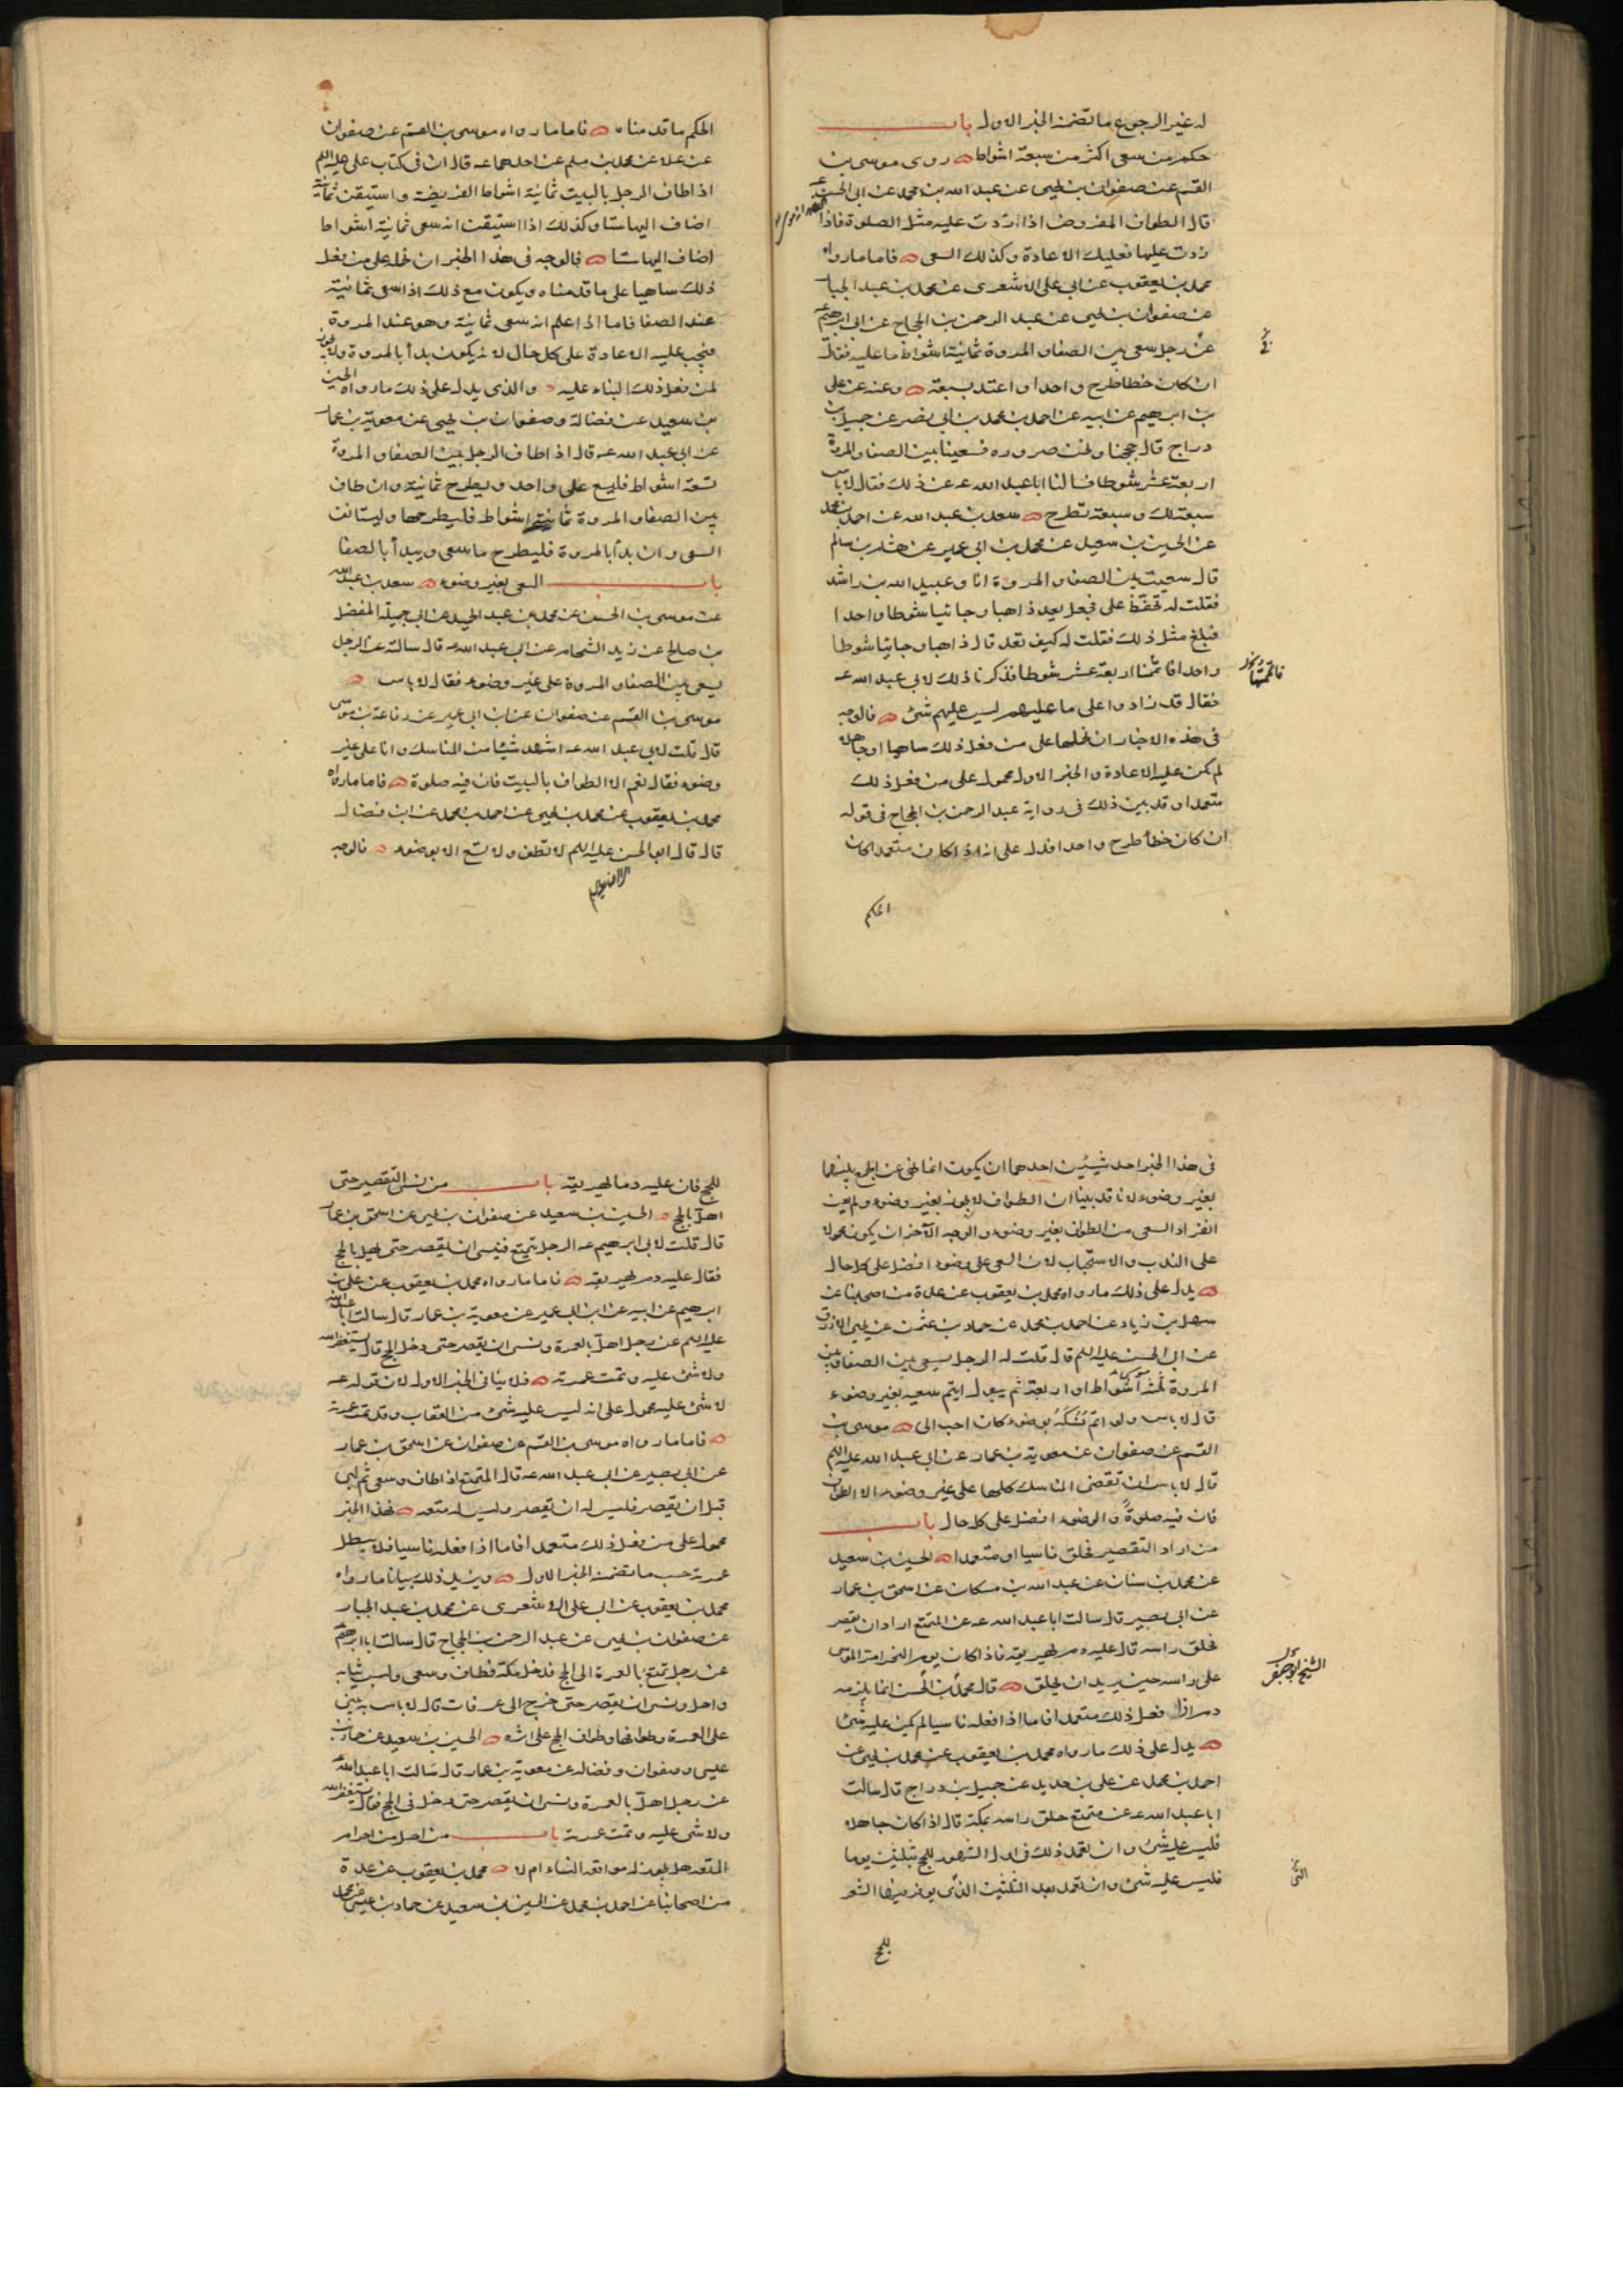 له غير الرجوع ما تضمنه الخبر الاول باب
حكم من سعى اكثر من سبعة اشواط روى موسى بن
القسم عن صفوان بن يحيى عن عبد الله بن محمد عن ابى الحسن ع
قال الطواف المفروض اذا زدت عليه مثل الصلوة فاذا
زدت عليها فعليك الاعادة وكذلك السعى فاما ما رواه
محمد بن يعقوب عن ابى على الاشعرى عن محمد بن عبد الجبار
عن صفوان بن يحيى عن عبد الرحمن بن الحجاج عن ابى ابرهيم ع
عن رجل سعى بين الصفا و المروة ثمانية اشواط ما عليه فقال
ان كان خطا طرح واحدا واعتد بسبعة وعنه عن على
بن ابرهيم عن ابيه عن احمد بن محمد بن ابى نصر عن جميل بن
دراج قال حججنا ونحن صروره فسعينا بين الصفا والمروة
اربعة عشر شوطا فسالنا ابا عبد الله عه عن ذلك فقال لا باس
سبعة لك وسبعة تطرح سعد بن عبد الله عن احمد بن محمد
عن الحسين بن سعيد عن محمد بن ابى عمير عن هشام بن سالم
قال سعيت بين الصفا و المروة انا و عبيد الله بن راشد
فقلت له تحفظ على فجعل يعد ذاهبا وجائيا شوطا واحدا
فبلغ مثل ذلك فقلت له كيف تعد قال ذاهبا وجائيا شوطا
واحدا فاتممنا اربعة عشر شوطا فذكرنا ذلك لابى عبد الله عه
فقال قد زادوا على ما عليهم ليس عليهم شئ فالوجه
فى هذه الاخبار ان نحملها على من فعل ذلك ساهيا او جاهلا
لم يكن عليه الاعادة و الخبر الاول محمول على من فعل ذلك
متعمدا وقد بين ذلك فى رواية عبد الرحمن بن الحجاج فى قوله
ان كان خطأ طرح واحدا فدل على انه اذا كان متعمدا كان
الحكم
الحكم ما قدمناه فاما ما رواه موسى بن القسم عن صفوان
عن علا عن محمد بن مسلم عن احدهما عه قال ان فى كتاب على عليه السلم
اذا طاف الرجل بالبيت ثمانية اشواط الفريضة و استيقن ثمانية
اضاف اليها ستا وكذلك اذا استيقن انه سعى ثمانية اشواط
اضاف اليها ستا فالوجه فى هذا الخبر ان نحمله على من فعل
ذلك ساهيا على ما قدمناه ويكون مع ذلك اذا سعى ثمانية
عند الصفا فاما اذا علم انه سعى ثمانية وهو عند المروة
فيجب عليه الاعادة على كل حال لانه يكون بدأ بالمروة ولا يجوز
لمن فعل ذلك البناء عليه والذى يدل على ذلك ما رواه الحسين
بن سعيد عن فضالة وصفوان بن يحيى عن معوية بن عمار
عن ابى عبد الله عه قال اذا طاف الرجل بين الصفا و المروة
تسعة اشواط فليسع على واحد ويطرح ثمانية وان طاف
بين الصفا و المروة ثمانية اشواط فليطرحها وليستانف
السعى وان بدأ بالمروة فليطرح ما سعى ويبدأ بالصفا
باب السعى بغير وضوء سعد بن عبد الله
عن موسى بن الحسن عن محمد بن عبد الحميد عن ابى جميلة المفضل
بن صالح عن زيد الشحام عن ابى عبد الله عه قال سالته عن الرجل
يسعى بين الصفا و المروة على غير وضوء فقال لا باس
موسى بن القسم عن صفوان عن ابن ابى عمير عن رفاعة بن موسى
قال قلت لابى عبد الله عه اشهد شيئا من المناسك وانا على غير
وضوء فقال نعم الا الطواف بالبيت فان فيه صلوة فاما ما رواه
محمد بن يعقوب عن محمد بن يحيى عن احمد بن محمد عن ابن فضال
قال قال ابو الحسن عليه السلم لا تطف ولا تسع الا بوضوء فالوجه
فى هذا الخبر احد شيئين احدهما ان يكون انما نهى عن الجمع بينهما
بغير وضوء لانا قد بينا ان الطواف لا يجوز بغير وضوء ولم يعن
انفراد السعى من الطواف بغير وضوء و الوجه الآخر ان يكون محمولا
على الندب و الاستحباب لان السعى على وضوء افضل على كل حال
يدل على ذلك ما رواه محمد بن يعقوب عن عدة من اصحابنا عن
سهل بن زياد عن احمد بن محمد عن حماد بن عثمن عن يحيى الازرق
عن ابى الحسن عليه السلم قال قلت له الرجل يسعى بين الصفا و
المروة ثلثة اشواط او اربعة ثم يبول ايتم سعيه بغير وضوء
قال لا باس ولو اتم نسكه بوضوء كان احب الى موسى بن
القسم عن صفوان عن معوية بن عمار عن ابى عبد الله عليه السلم
قال لا باس ان تقضى المناسك كلها على غير وضوء الا الطواف
فان فيه صلوةً و الوضوء افضل على كل حال باب
من اراد التقصير فحلق ناسيا او متعمدا الحسين بن سعيد
عن محمد بن سنان عن عبد الله بن مسكان عن اسحق بن عمار
عن ابى بصير قال سالت ابا عبد الله عه عن المتمتع اراد ان يقصر
فحلق راسه قال عليه دم يهريقه فاذا كان يوم النحر امر الموسى
على راسه حين يريد ان يحلق قال محمد بن الحسن انما يلزمه
دم اذا فعل ذلك متعمدا فاما اذا فعله ناسيا لم يكن عليه شئ
يدل على ذلك ما رواه محمد بن يعقوب عن محمد بن يحيى عن
احمد بن محمد عن على بن حديد عن جميل بن دراج قال سالت
ابا عبد الله عه عن متمتع حلق راسه بمكة قال اذا كان جاهلا
فليس عليه شئ وان تعمد ذلك فى اول الشهور للحج بثلثين يوما
فليس عليه شئ وان تعمد بعد الثلثين التى يوفر فيها الشعر
الشيخ ابو جعفر
التى
للحج
للحج فان عليه دما يهريقه باب من نسى التقصير حتى
اهل بالحج الحسين بن سعيد عن صفوان بن يحيى عن اسحق بن عمار
قال قلت لابى ابرهيم عه الرجل يتمتع فينسى ان يقصر حتى يهل بالحج
فقال عليه دم يهريقه فاما ما رواه محمد بن يعقوب عن على بن
ابرهيم عن ابيه عن ابن ابى عمير عن معوية بن عمار قال سالت ابا عبد الله
عليه السلم عن رجل اهل بالعمرة ونسى ان يقصر حتى دخل الحج قال يستغفر الله
ولا شئ عليه وتمت عمرته فلا ينافى الخبر الاول لان قوله عه
لا شئ عليه محمول على انه ليس عليه شئ من العقاب وقد تمت عمرته
فاما ما رواه موسى بن القسم عن صفوان عن اسحق بن عمار
عن ابى بصير عن ابى عبد الله عه قال المتمتع اذا طاف وسعى ثم لبى
قبل ان يقصر فليس له ان يقصر وليس له متعه فهذا الخبر
محمول على من فعل ذلك متعمدا فاما اذا فعله ناسيا فلا يبطل
عمرته حسب ما تضمنه الخبر الاول ويزيد ذلك بيانا ما رواه
محمد بن يعقوب عن ابى على الاشعرى عن محمد بن عبد الجبار
عن صفوان بن يحيى عن عبد الرحمن بن الحجاج قال سالت ابا ابرهيم
عن رجل تمتع بالعمرة الى الحج فدخل مكة فطاف وسعى ولبس ثيابه
واحل ونسى ان يقصر حتى خرج الى عرفات قال لا باس به يبنى
على العمرة وطوافها وطواف الحج على اثره الحسين بن سعيد عن حماد بن
عيسى وصفوان وفضاله عن معوية بن عمار قال سالت ابا عبد الله
عن رجل اهل بالعمرة ونسى ان يقصر حتى دخل فى الحج قال يستغفر الله
ولا شى عليه وتمت عمرته باب من احل من احرام
المتعه هل يجوز له مواقعة النساء ام لا محمد بن يعقوب عن عدة
من اصحابنا عن احمد بن محمد عن الحسين بن سعيد عن حماد بن عيسى